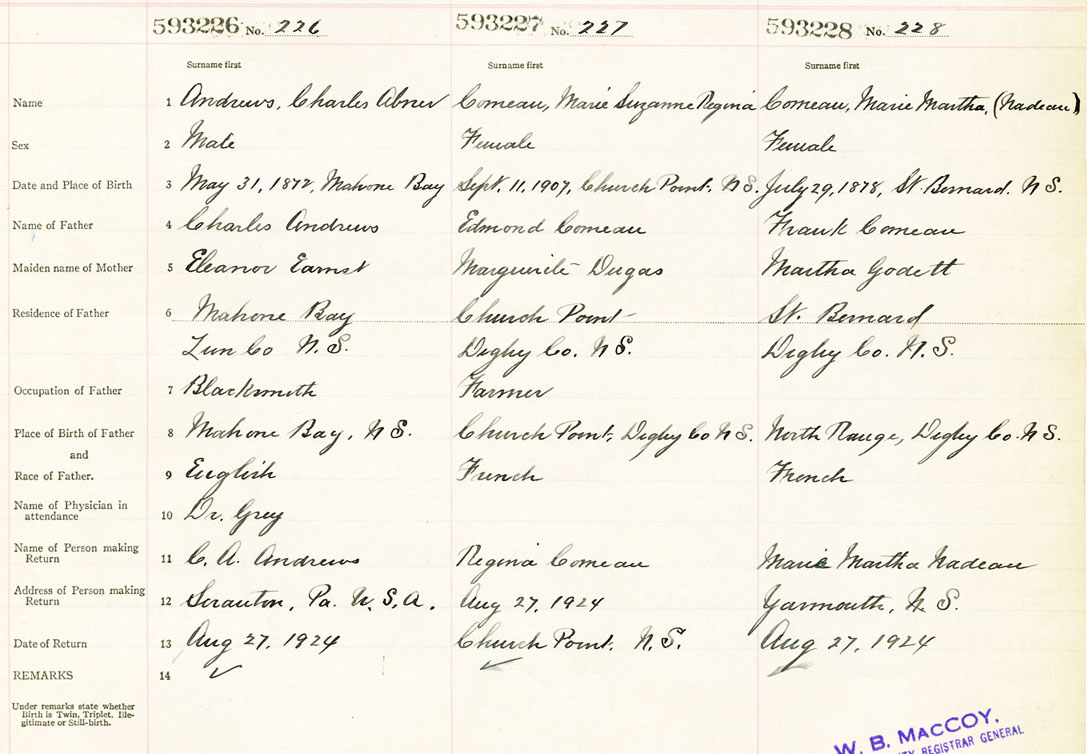 593226 No. 226 593227 No. 227 593228 No. 228
Surname first Surname first Surname first
Name 1 Andrews, Charles Abner Comeau, Marie Suzanne Regina Comeau, Marie Martha, (Nadeau)
Sex 2 Male Female Female
Date and Place of Birth 3 May 31, 1872, Mahone Bay Sept. 11, 1907, Church Point. N S. July 29, 1878, St Bernard. N S.
Name of Father 4 Charles Andrews Edmond Comeau Frank Comeau
Maiden name of Mother 5 Eleanor Earnst Marguerite Dugas Martha Godett
Residence of Father 6 Mahone Bay Church Point St. Bernard
Lun Co N.S. Digby Co. N S. Digby Co. N.S.
Occupation of Father 7 Blacksmith Farmer
Place of Birth of Father 8 Mahone Bay, N S. Church Point, Digby Co N S. North Range, Digby Co. N S.
and
Race of Father. 9 English French French
Name of Physician in
attendance 10 Dr. Grey
Name of Person making
Return 11 C. A. Andrews Regina Comeau Marie Martha Nadeau
Address of Person making
Return 12 Scranton, Pa. U.S.A. Aug 27, 1924 Yarmouth, N S.
Date of Return 13 Aug 27, 1924 Church Point. N.S. Aug 27, 1924
REMARKS 14 ✓
Under remarks state whether
Birth is Twin, Triplet, Ille-
gitimate or Still-birth.
W. B. MACCOY,
REGISTRAR GENERAL